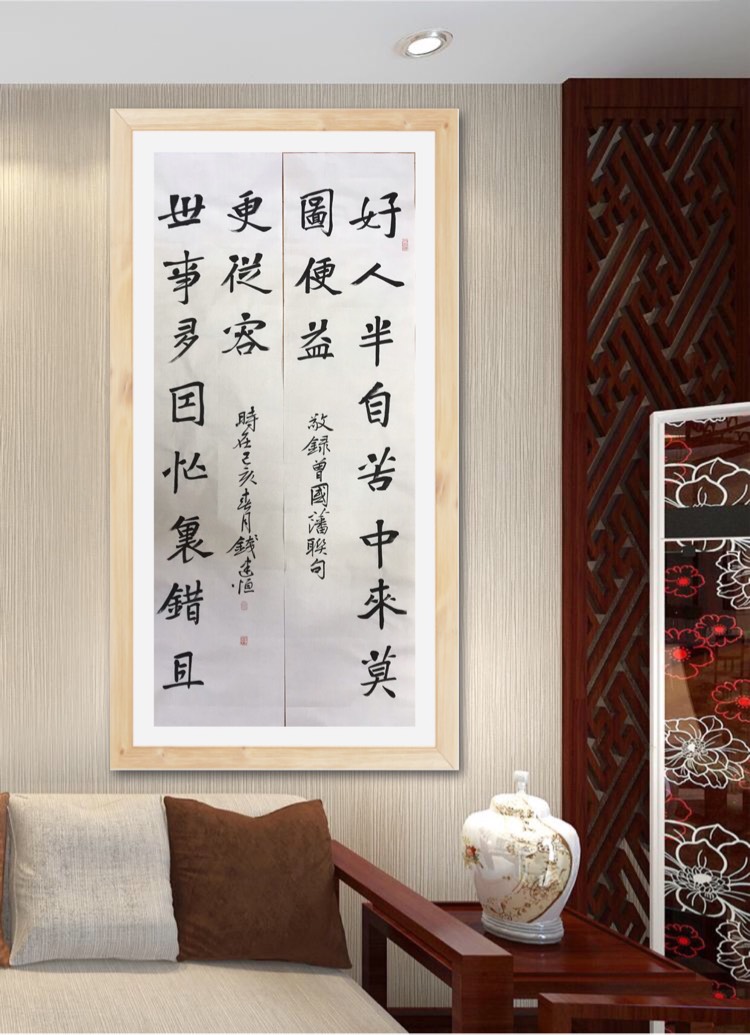 好人半自苦中來莫
圖便益
敬錄曾國藩聯句
世事多囙忙裏錯且
更從容
時在己亥春月錢建恒